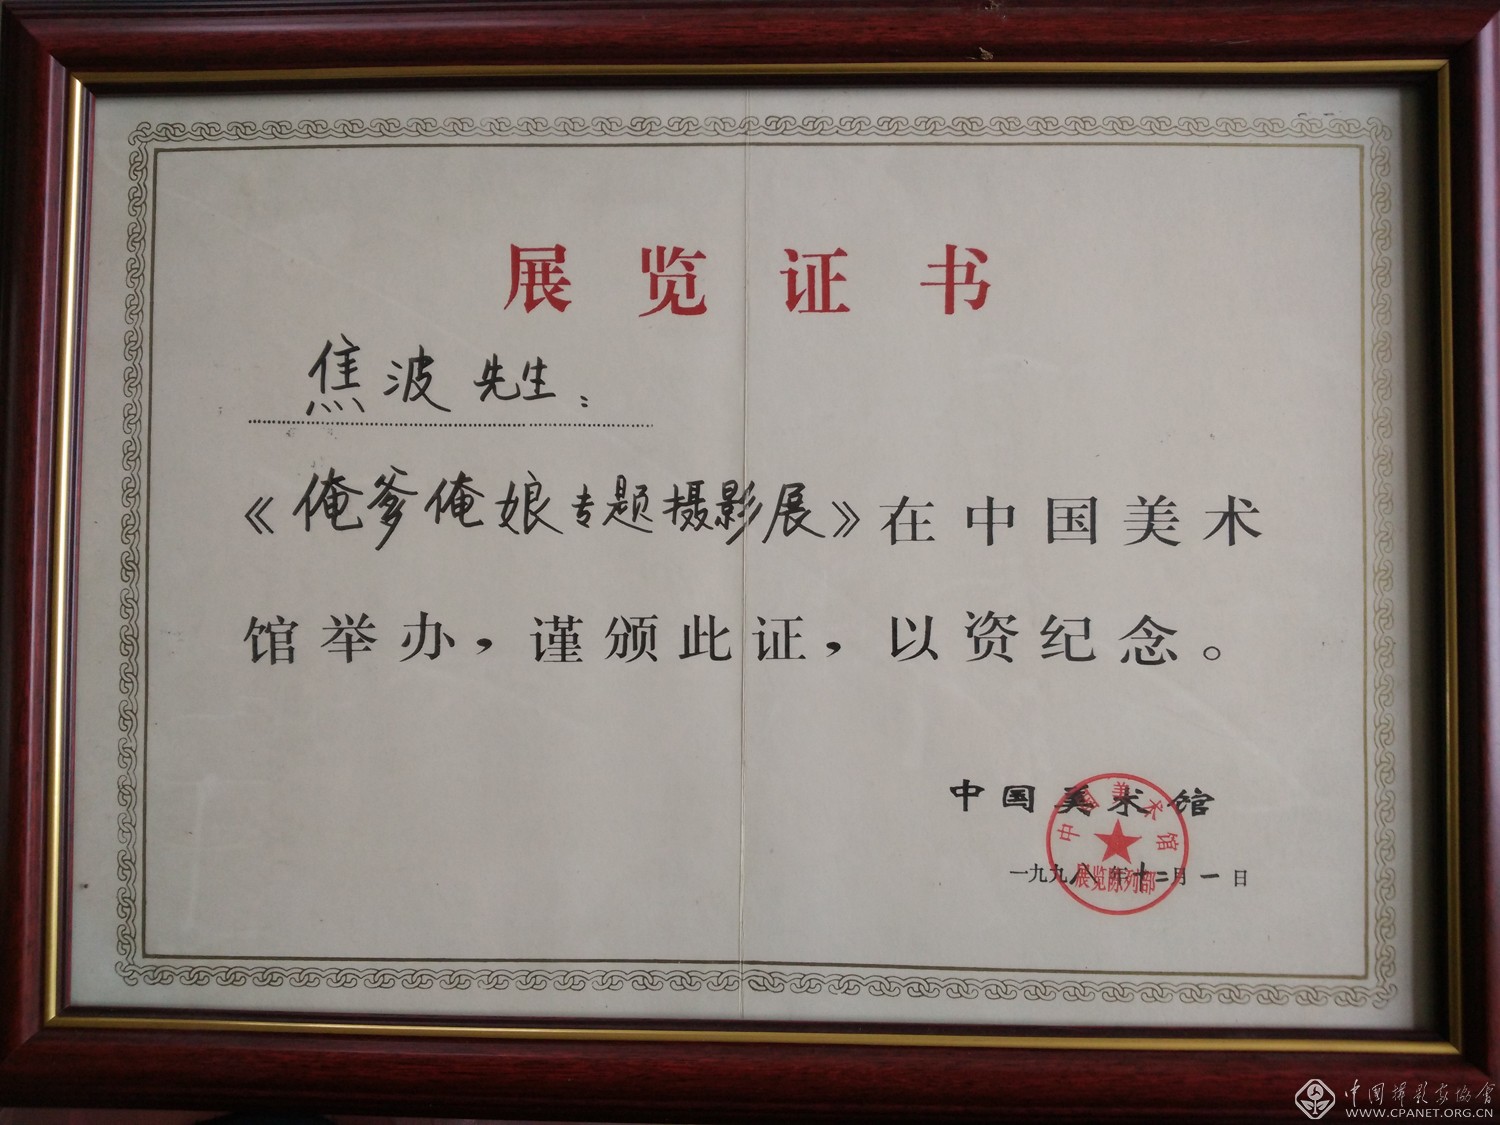 展览证书
焦波先生：
《俺爹俺娘专题摄影展》在中国美术
馆举办，谨颁此证，以资纪念。
中国美术馆
一九九八年十二月一日
中国美术馆
展览陈列部
中国摄影家协会
WWW.CPANET.ORG.CN